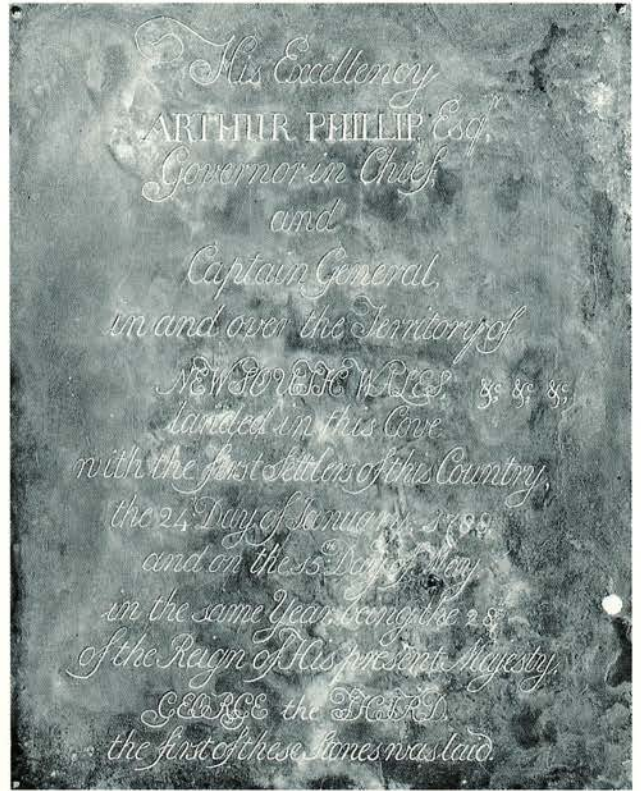 His Excellency
ARTHUR PHILLIP Esqr.
Governor in Chief,
and
Captain General,
in and over the Territory of
NEW SOUTH WALES, &c, &c, &c,
landed in this Cove
with the first Settlers of this Country,
the 24th Day of January, 1788,
and on the 15th Day of May
in the same Year being the 28th
of the Reign of His present Majesty,
GEORGE the THIRD,
the first of these Stones was laid.